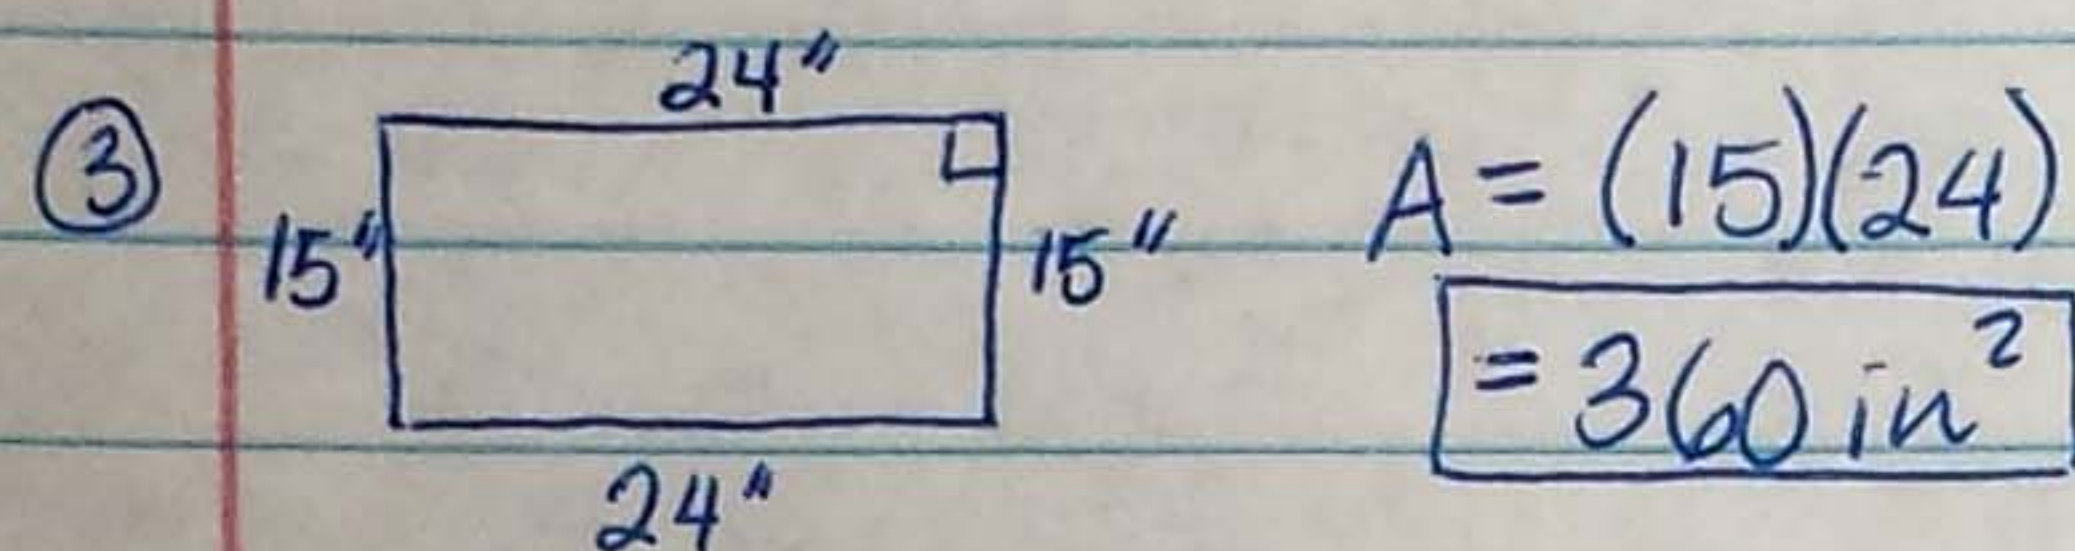 ③
24"
15"
15"
24"
A = (15)(24)
= 360 in²